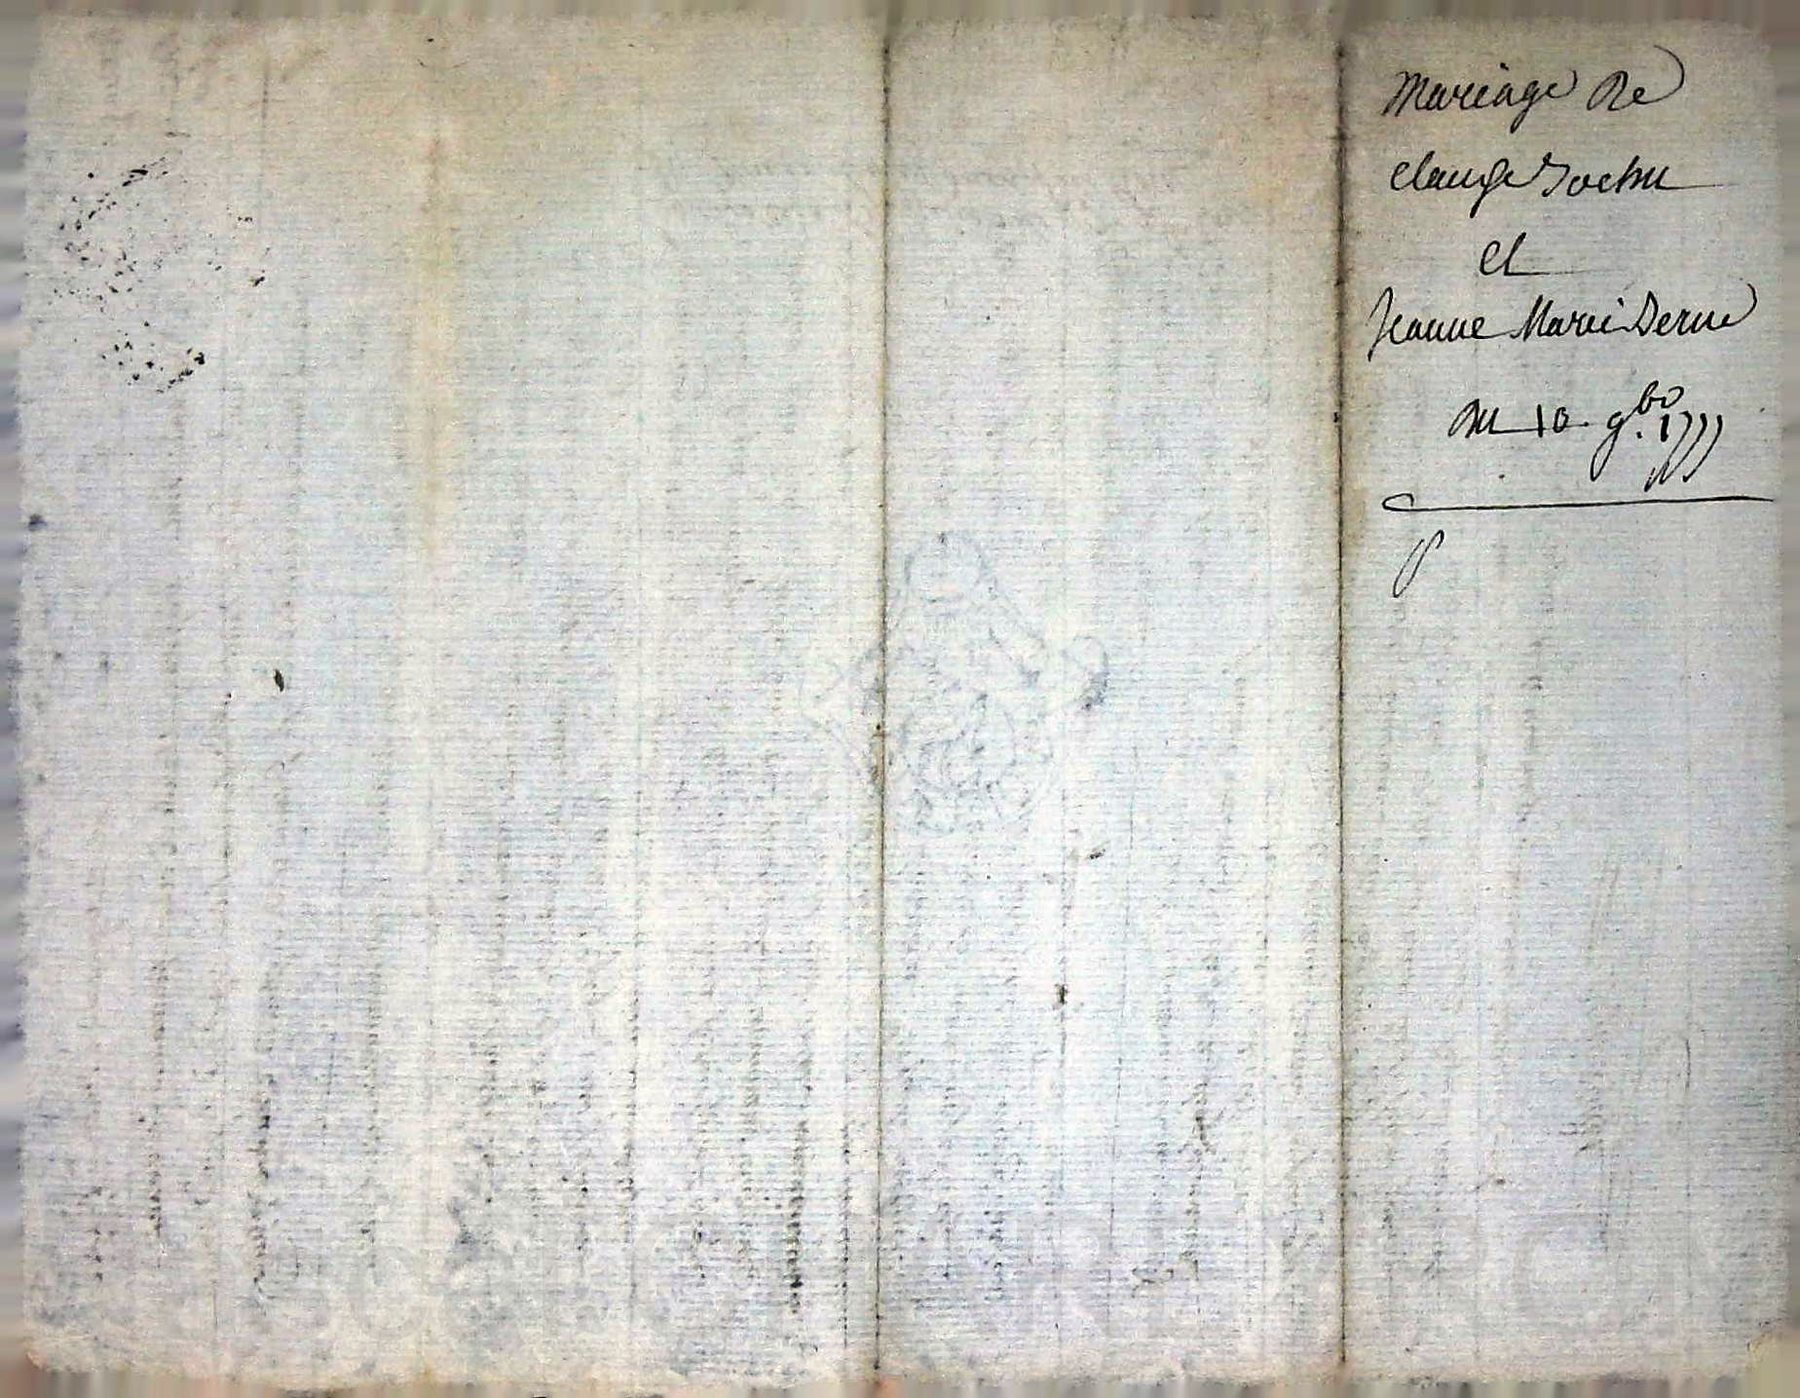 Mariage de
Claude Jochu
et
Jeanne Marie Derue
du 10. 9.bre 1777